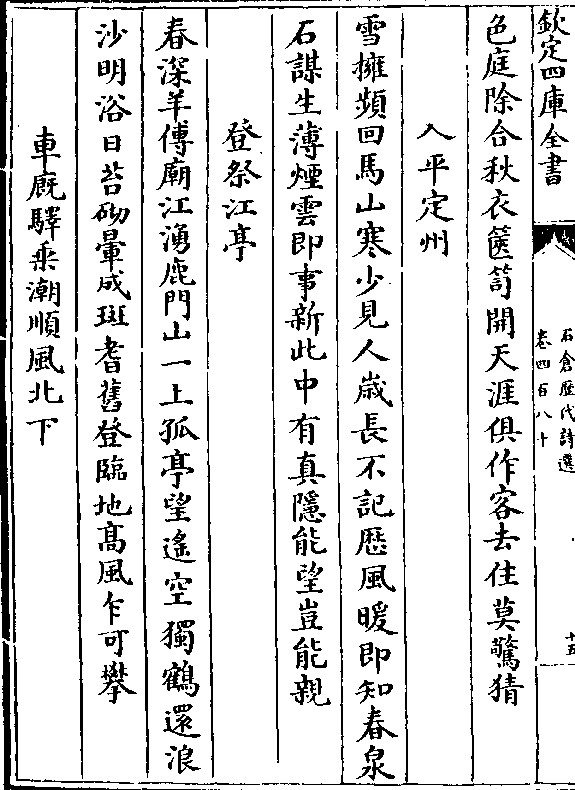 欽定四庫全書
石倉歷代詩選
卷四百八十
十五
色庭除合秋衣篋笥開天涯俱作客去住莫驚猜
入平定州
雪擁頻回馬山寒少見人嵗長不記厯風暖即知春泉
石謀生薄煙雲即事新此中有真隱能望豈能親
登祭江亭
春深羊傅廟江湧鹿門山一上孤亭望遙空獨鶴還浪
沙明浴日苔砌暈成斑耆舊登臨地髙風乍可攀
車厩驛乗潮順風北下